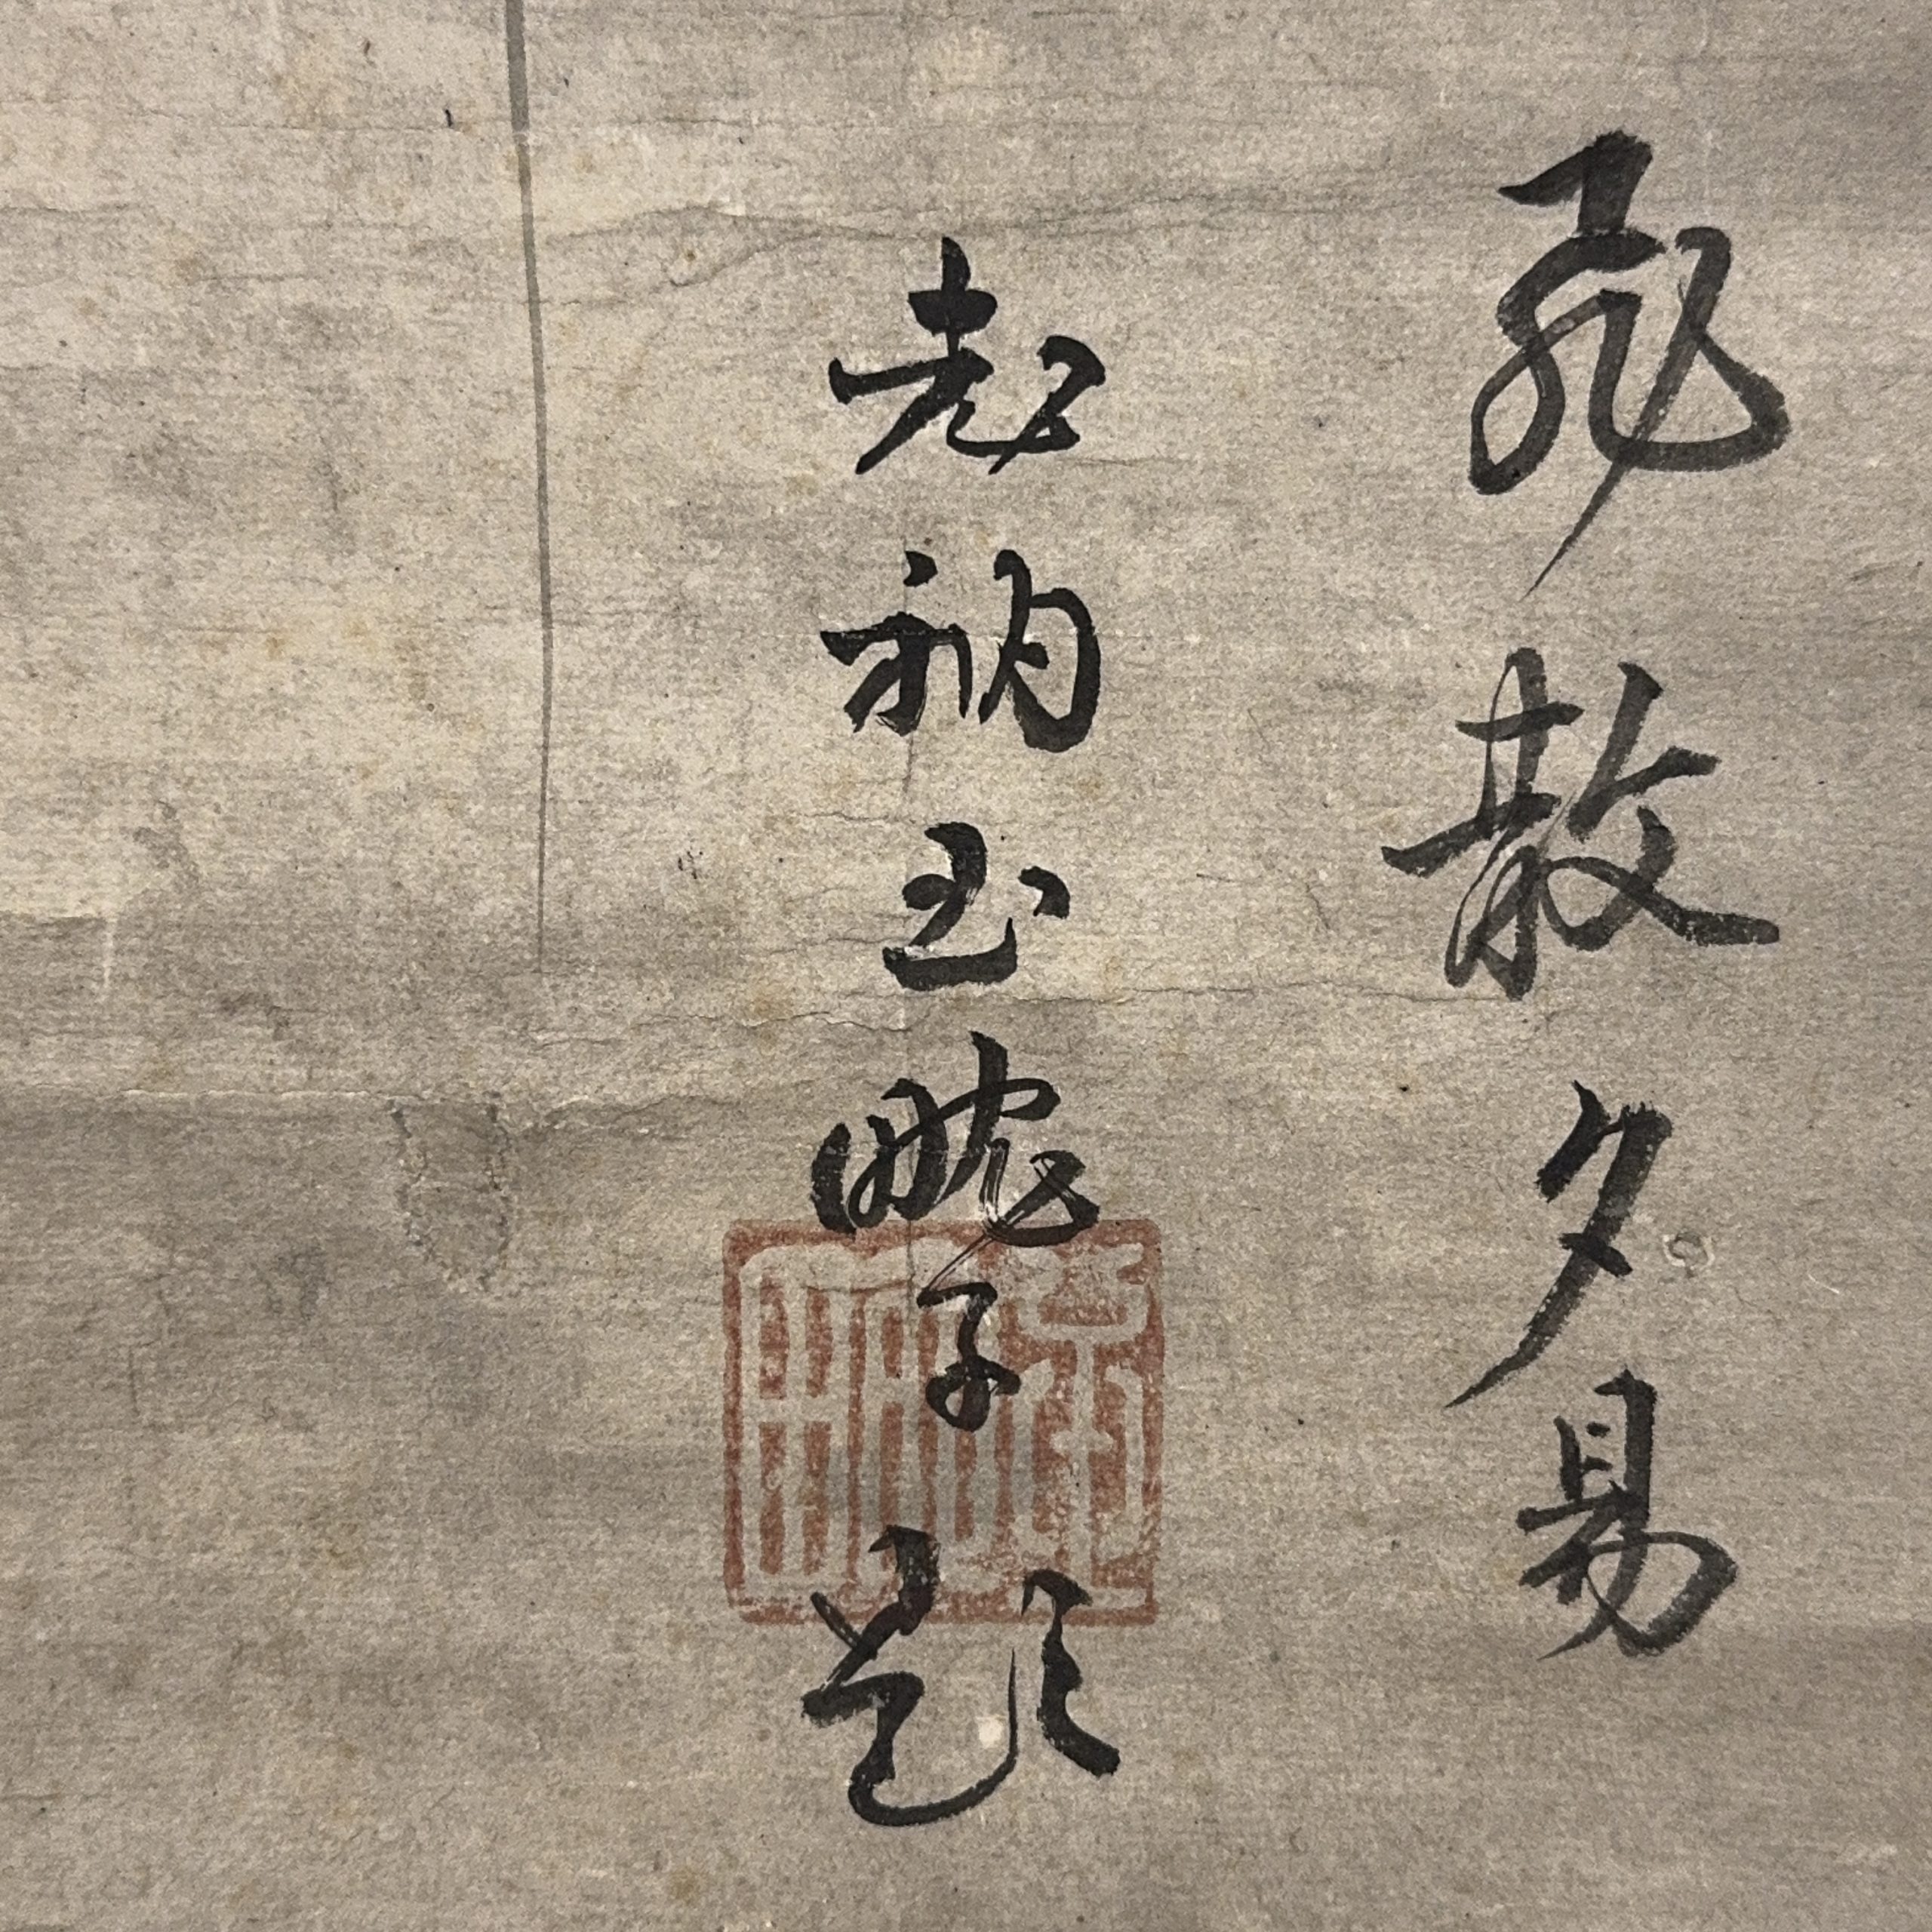 飛散夕易
老衲玉畹子題